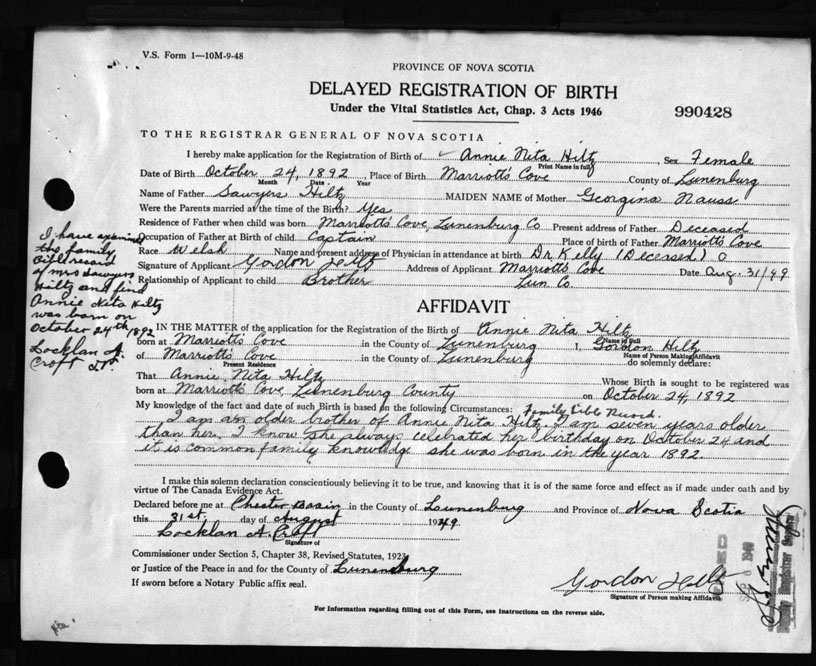 V.S. Form 1—10M-9-48
PROVINCE OF NOVA SCOTIA
DELAYED REGISTRATION OF BIRTH
Under the Vital Statistics Act, Chap. 3 Acts 1946
990428
TO THE REGISTRAR GENERAL OF NOVA SCOTIA
I hereby make application for the Registration of Birth of Annie Nita Hiltz, Sex Female
Print Name in full
Date of Birth October 24, 1892, Place of Birth Marriott's Cove County of Lunenburg
Month Date Year
Name of Father Sawyers Hiltz MAIDEN NAME of Mother Georgina Nauss
Were the Parents married at the time of the Birth? Yes
Residence of Father when child was born Marriott's Cove, Lunenburg Co Present address of Father Deceased
Occupation of Father at Birth of child Captain Place of birth of Father Marriott's Cove
Race Welsh Name and present address of Physician in attendance at birth Dr. Kelly (Deceased)
Signature of Applicant Gordon Hiltz Address of Applicant Marriott's Cove Date Aug. 31/49
Relationship of Applicant to child Brother Lun. Co.
I have examined
the family
Bible record
of Mrs Sawyers
Hiltz and find
Annie Nita Hiltz
was born on
October 24th 1892
Locklan A.
Croft
AFFIDAVIT
IN THE MATTER of the application for the Registration of the Birth of Annie Nita Hiltz
Name in Full
born at Marriott's Cove in the County of Lunenburg I, Gordon Hiltz
Name of Person Making Affidavit
of Marriott's Cove in the County of Lunenburg do solemnly declare:
Present Residence
That Annie Nita Hiltz Whose Birth is sought to be registered was
born at Marriott's Cove Lunenburg County on October 24, 1892
My knowledge of the fact and date of such Birth is based on the following Circumstances: Family Bible Record.
I am an older brother of Annie Nita Hiltz. I am seven years older
than her. I know she always celebrated her birthday on October 24 and
it is common family knowledge she was born in the year 1892.
I make this solemn declaration conscientiously believing it to be true, and knowing that it is of the same force and effect as if made under oath and by
virtue of The Canada Evidence Act.
Declared before me at Chester Basin in the County of Lunenburg and Province of Nova Scotia
this 31st. day of August 1949
Locklan A. Croft
Signature of
Commissioner under Section 5, Chapter 38, Revised Statutes, 1923
or Justice of the Peace in and for the County of Lunenburg
If sworn before a Notary Public affix seal.
Gordon Hiltz
Signature of Person making Affidavit
For Information regarding filling out of this Form, see Instructions on the reverse side.